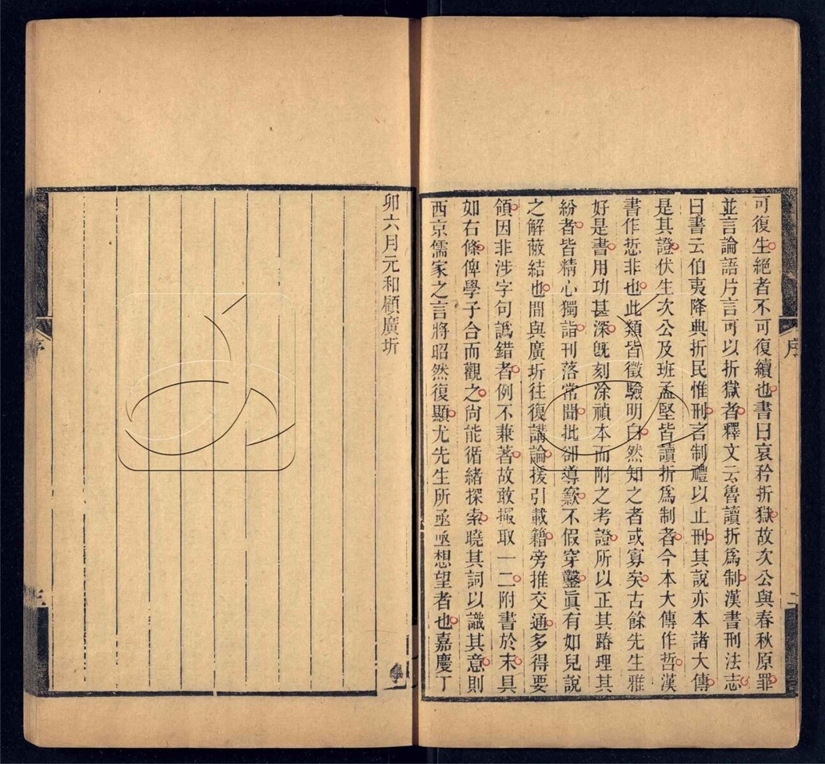 可復生絕者不可復續也書曰哀矜折獄故次公與春秋原罪
並言論語片言可以折獄者釋文云魯讀折爲制漢書刑法志
曰書云伯夷降典折民惟刑言制禮以止刑其說亦本諸大傳
是其證伏生次公及班孟堅皆讀折爲制者今本大傳作哲漢
書作悊非也此類皆徵驗明白然知之者或寡矣古餘先生雅
好是書用功甚深旣刻涂禎本而附之考證所以正其踳理其
紛者皆精心獨詣刊落常聞批卻導窾不假穿鑿眞有如兒說
之解蔽結也閒與廣圻往復講論援引載籍旁推交通多得要
領因非涉字句譌錯者例不兼著故敢撮取一二附書於末具
如右條俾學子合而觀之尙能循緒探索曉其詞以識其意則
西京儒家之言將昭然復顯尤先生所亟亟想望者也嘉慶丁
卯六月元和顧廣圻
序
二
序
三